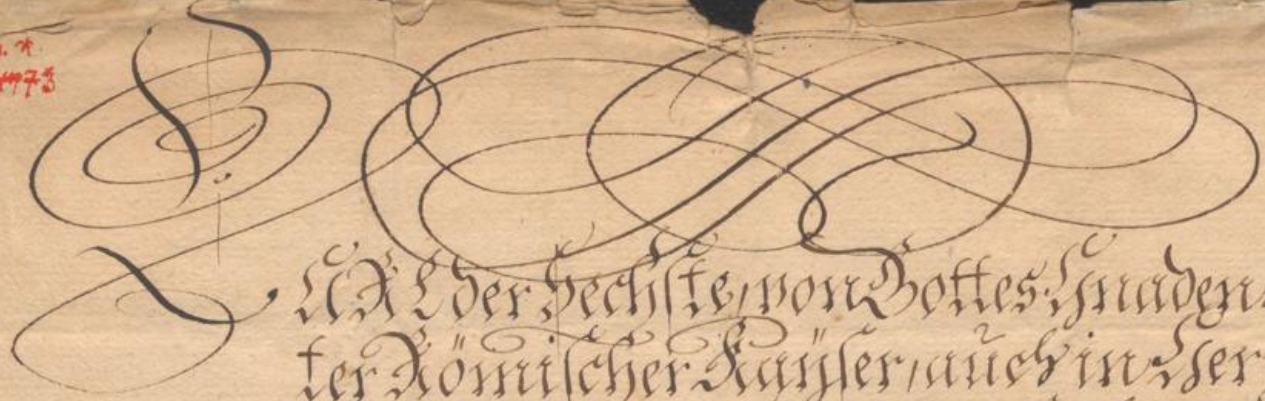 CARL der Sechste, von Gottes Gnaden
ter Römischer Kaÿser, auch in Ger